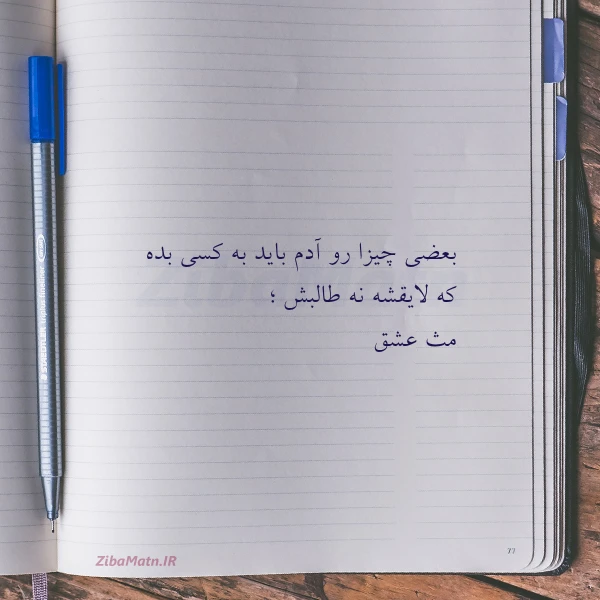 بعضی چیزا رو آدم باید به کسی بده
که لایقشه نه طالبش ؛
مث عشق
ZibaMatn.IR